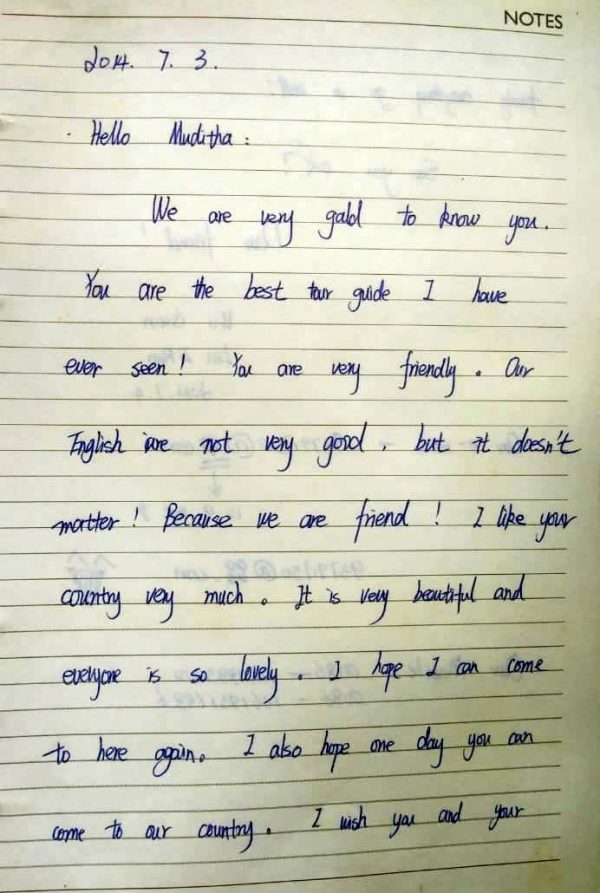 NOTES
2014. 7. 3.
Hello Muditha:
We are very gald to know you.
You are the best tour guide I have
ever seen! You are very friendly. Our
English are not very good, but it doesn't
matter! Because we are friend! I like your
country very much. It is very beautiful and
everyone is so lovely. I hope I can come
to here again. I also hope one day you can
come to our country. I wish you and your